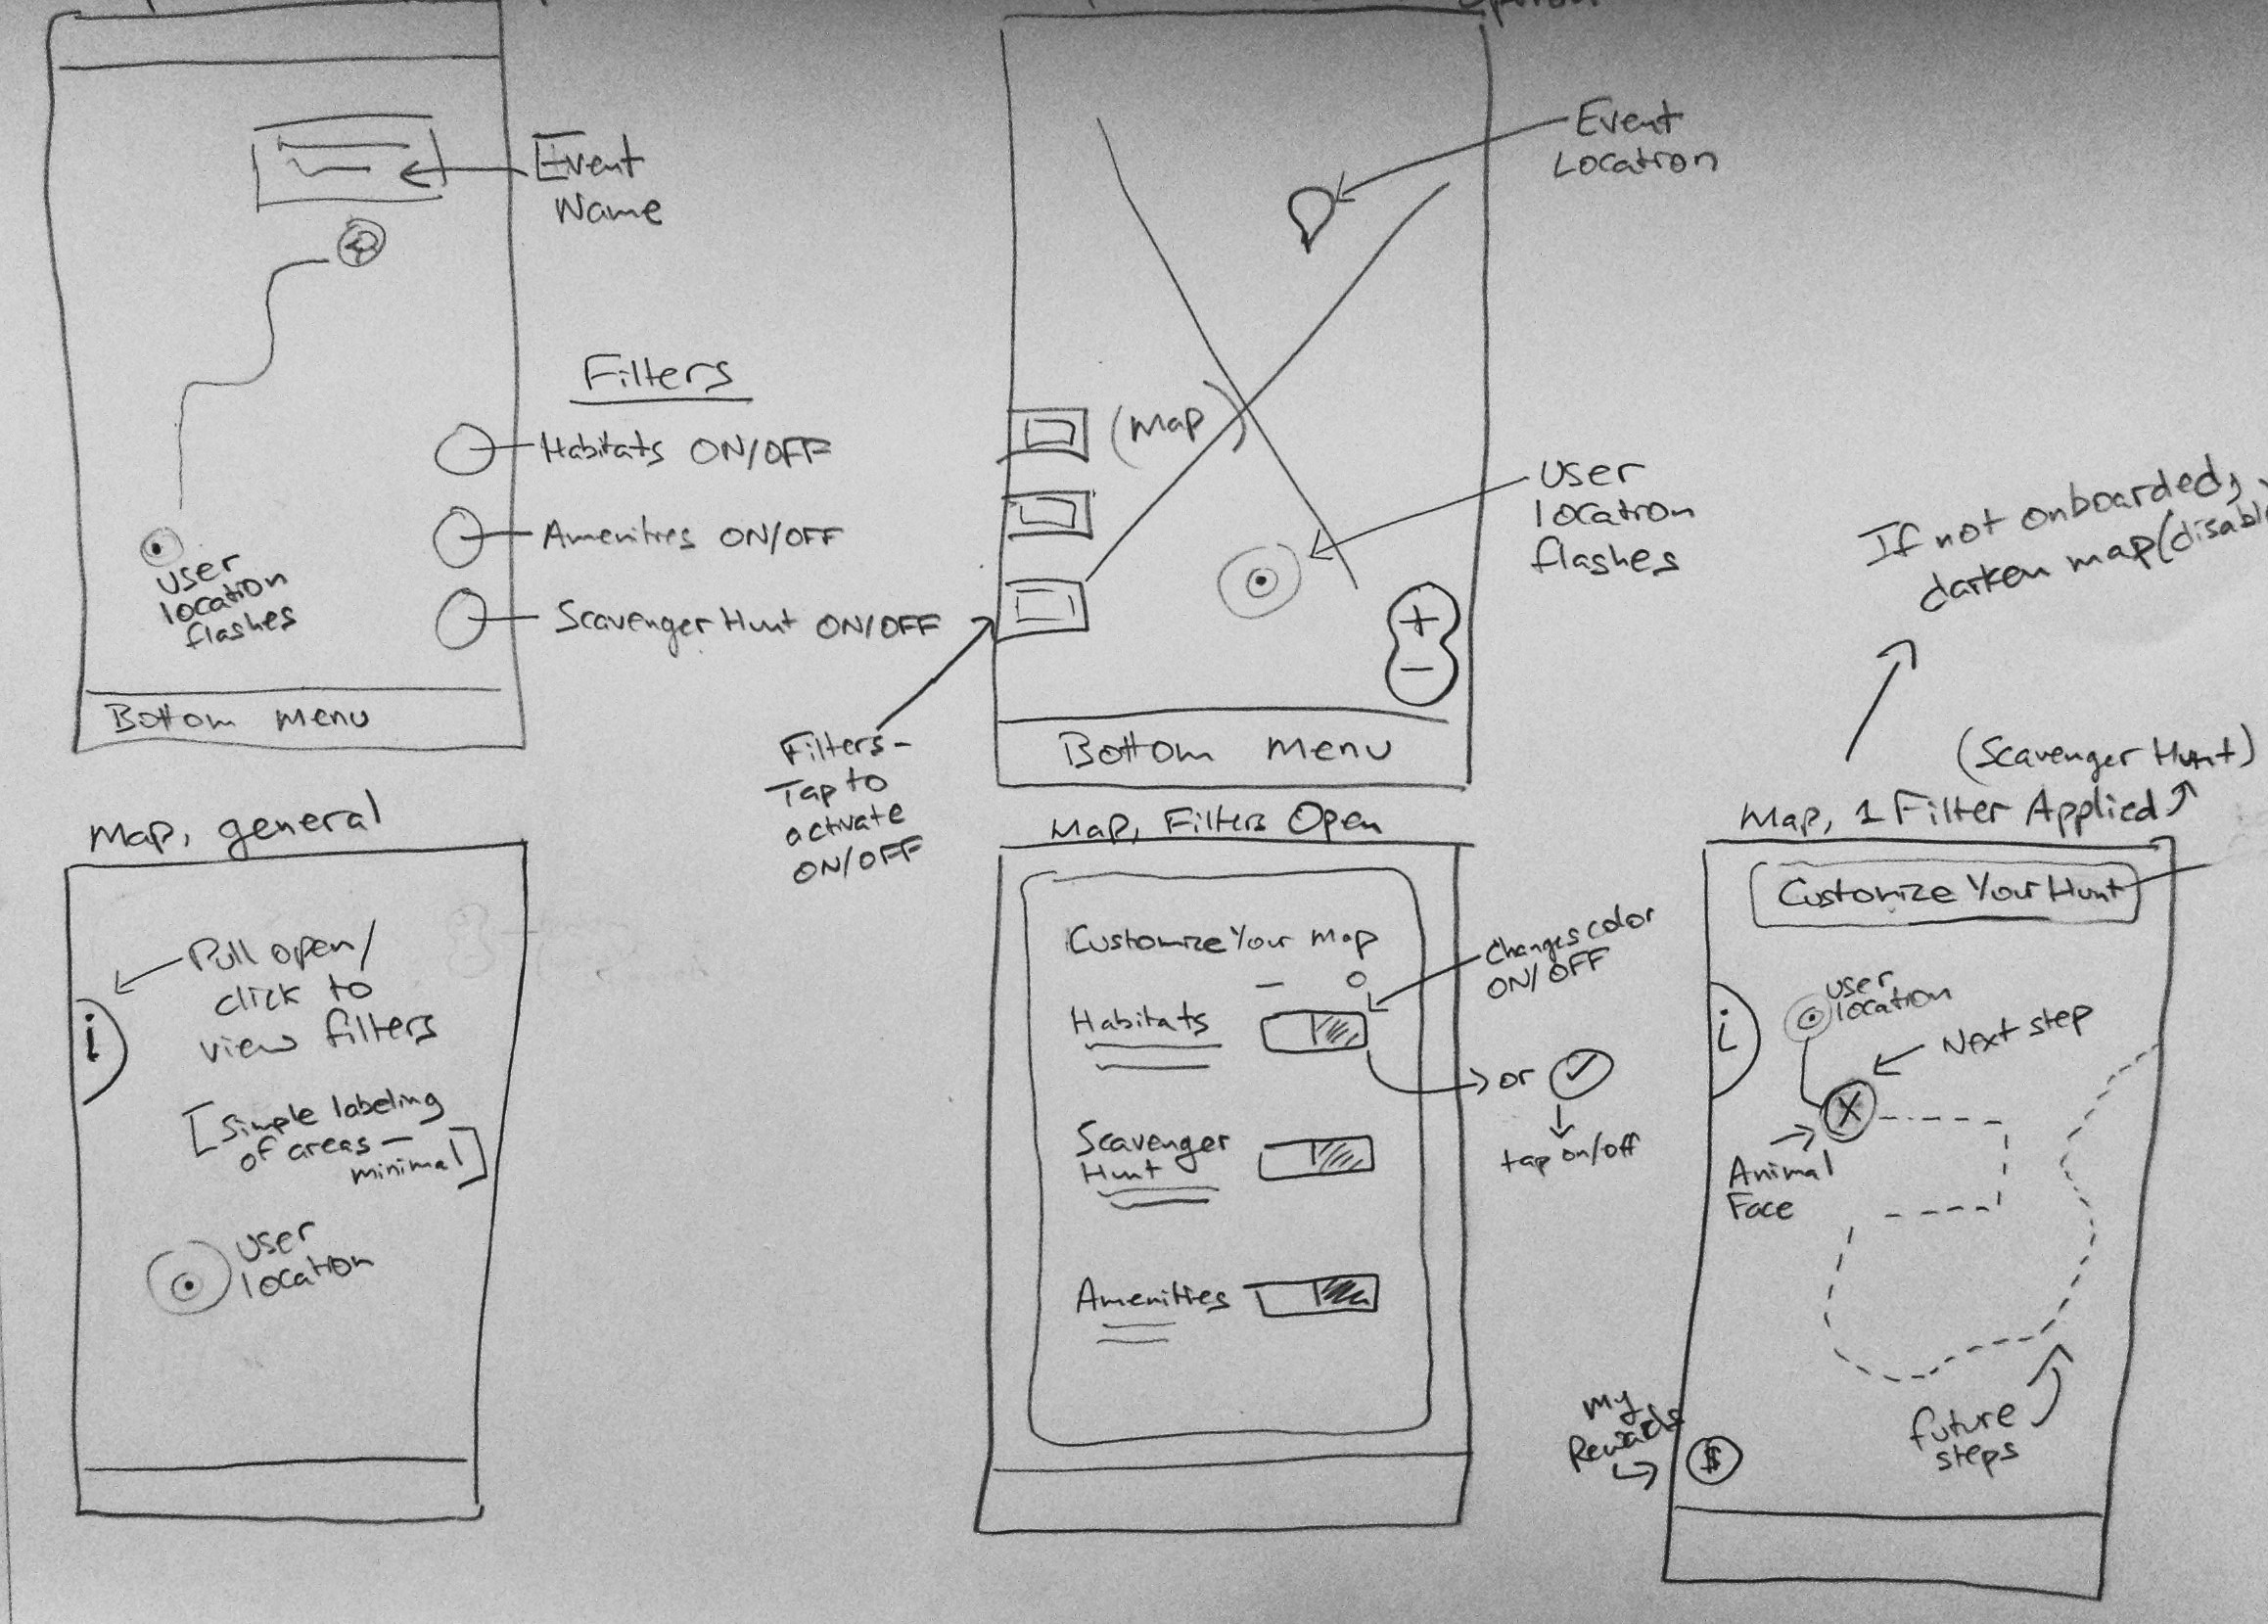 Event
Name
Filters
Habitats ON/OFF
Amenities ON/OFF
Scavenger Hunt ON/OFF
User
location
flashes
Bottom menu
Event
Location
(Map)
User
location
flashes
+
-
Filters -
Tap to
activate
ON/OFF
Bottom menu
If not onboarded,
darken map
Map, general
Pull open/
click to
view filters
i
[Simple labeling
of areas -
minimal]
User
location
Map, Filters Open
Customize Your Map
Habitats
Scavenger
Hunt
Amenities
Changes color
ON/OFF
or
tap on/off
(Scavenger Hunt)
Map, 1 Filter Applied
Customize Your Hunt
User
location
i
Next step
X
Animal
Face
future
steps
My
Rewards
$